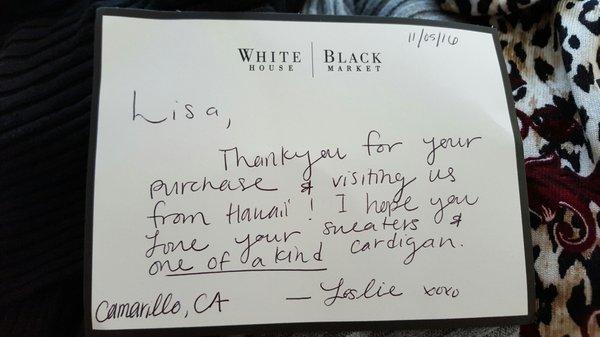 11/05/16
WHITE HOUSE | BLACK MARKET
Lisa,
Thankyou for your
purchase & visiting us
from Hawaii! I hope you
Love your sweaters &
one of a kind cardigan.
— Leslie xoxo
Camarillo, CA